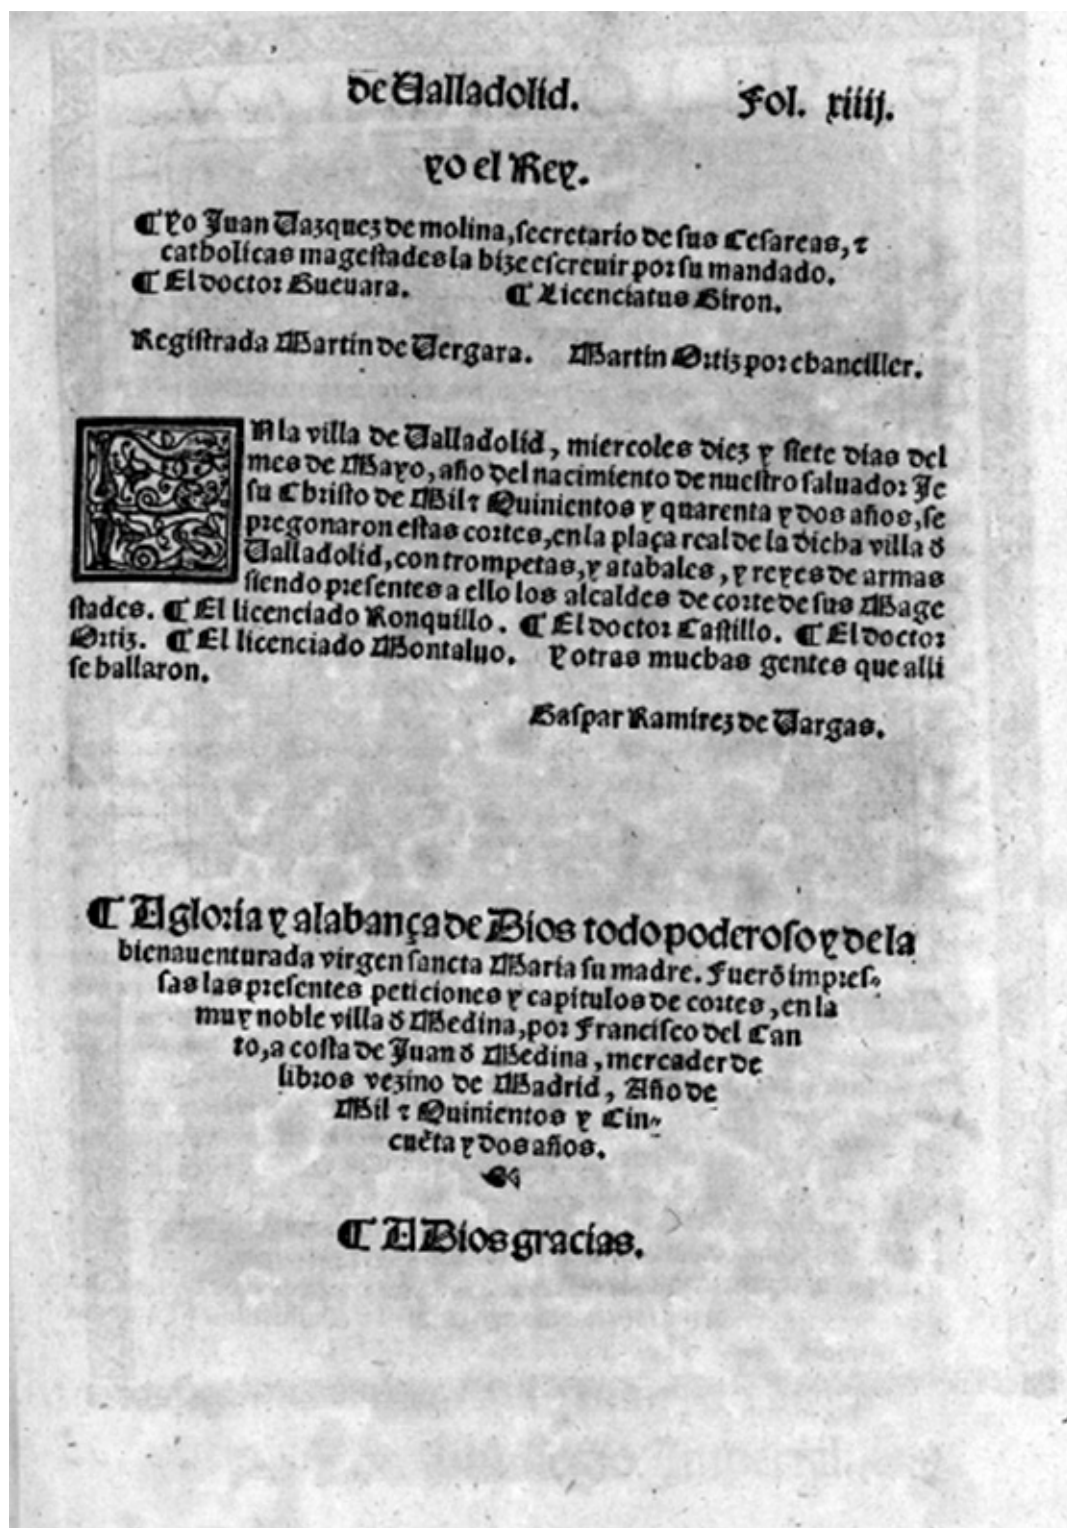 de Ualladolid. Fol. xiiij.
yo el Rey.
¶ Yo Juan Uazquez de molina, secretario de sus Cesareas, ⁊
catholicas magestades la hize escreuir por su mandado.
¶ El doctor Gueuara. ¶ Licenciatus Giron.
Registrada Martin de Uergara. Martin Ortiz por chanciller.
EN la villa de Ualladolid, miercoles diez y siete dias del
mes de Mayo, año del nacimiento de nuestro saluador Je
su Christo de Mil ⁊ Quinientos y quarenta y dos años, se
pregonaron estas cortes, en la plaça real de la dicha villa đ
Ualladolid, con trompetas, y atabales, y reyes de armas
siendo presentes a ello los alcaldes de corte de sus Mage
stades. ¶ El licenciado Ronquillo. ¶ El doctor Castillo. ¶ El doctor
Ortiz. ¶ El licenciado Montaluo. y otras muchas gentes que alli
se hallaron.
Gaspar Ramirez de Uargas.
¶ A gloria y alabança de Dios todo poderoso y de la
bienauenturada virgen sancta Maria su madre. Fuerō impres-
sas las presentes peticiones y capitulos de cortes, en la
muy noble villa đ Medina, por Francisco del Can
to, a costa de Juan đ Medina, mercader de
libros vezino de Madrid, Año de
Mil ⁊ Quinientos y Cin-
cuēta y dos años.
¶ A Dios gracias.